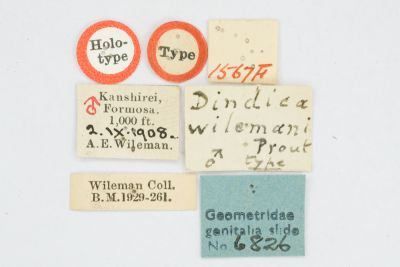 Holo-
type
Type
1567F
♂ Kanshirei,
Formosa,
1,000 ft.
2.IX.1908.
A.E. Wileman.
Dindica
wilemani
Prout
♂ type
Wileman Coll.
B.M.1929-261.
Geometridae
genitalia slide
No. 6826